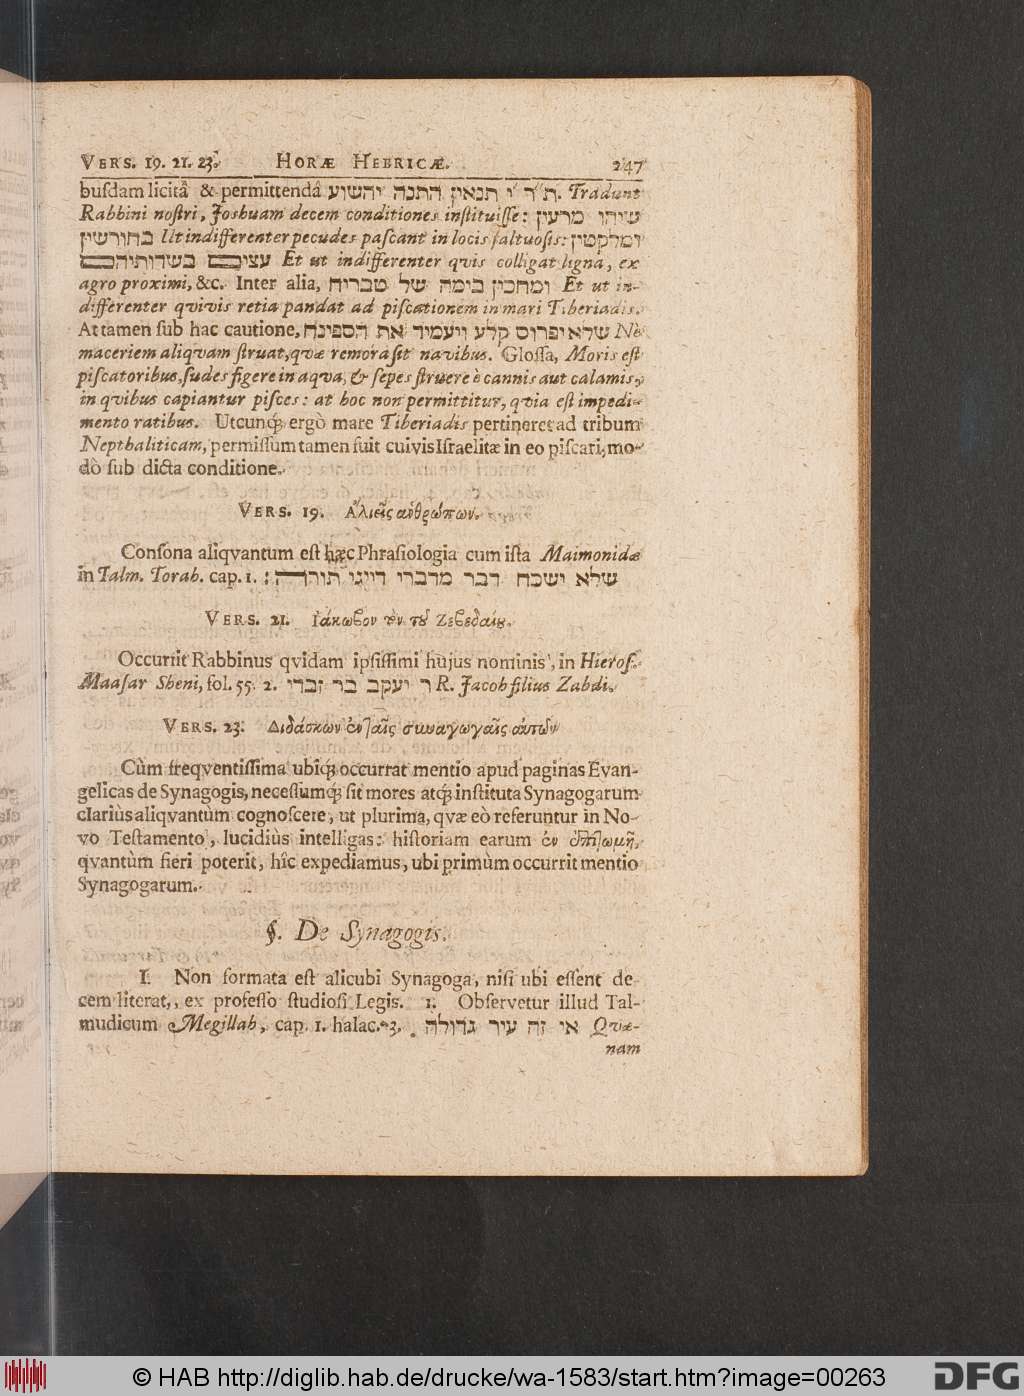 VERS. 19. 21. 23. HORÆ HEBRICÆ. 247
busdam licitâ & permittendâ ת״ר י׳ תנאין התנה יהשוע. Tradunt
Rabbini nostri, Joshuam decem conditiones instituisse: שיהו מרעין
בחורשין Ut indifferenter pecudes pascant in locis saltuosis: ומלקטין
עצים בשדותיהם Et ut indifferenter qvis colligat ligna, ex
agro proximi, &c. Inter alia, ומחכין בימה של טבריח Et ut in-
differenter qvivis retia pandat ad piscationem in mari Tiberiadis.
Attamen sub hac cautione, שלא יפרוס קלע ויעמיד את הספינה Nè
maceriem aliqvam struat, qvæ remora sit navibus. Glossa, Moris est
piscatoribus, sudes figere in aqva, & sepes struere è cannis aut calamis,
in qvibus capiantur pisces: at hoc non permittitur, qvia est impedi-
mento ratibus. Utcunq; ergò mare Tiberiadis pertineret ad tribum
Nepthaliticam, permissum tamen fuit cuivis Israelitæ in eo piscari, mo-
dò sub dicta conditione.
VERS. 19. Ἁλιεῖς ἀνθρώπων.
Consona aliqvantum est hæc Phrasiologia cum ista Maimonidæ
in Talm. Torah. cap. 1. שלא ישכח דבר מדברי דייגי תורה:
VERS. 21. Ἰάκωβον τὸν τοῦ Ζεβεδαίου.
Occurrit Rabbinus qvidam ipsissimi hujus nominis, in Hieros.
Maasar Sheni, fol. 55. 2. ר יעקב בר זבדי R. Jacob filius Zabdi.
VERS. 23. Διδάσκων ἐν ταῖς συναγωγαῖς αὐτῶν
Cùm freqventissima ubiq; occurrat mentio apud paginas Evan-
gelicas de Synagogis, necessumq; sit mores atq; instituta Synagogarum
clariùs aliqvantùm cognoscere, ut plurima, qvæ eò referuntur in No-
vo Testamento, lucidiùs intelligas: historiam earum ἐν ἐπιτωμῇ,
qvantùm fieri poterit, hîc expediamus, ubi primùm occurrit mentio
Synagogarum.
§. De Synagogis.
I. Non formata est alicubi Synagoga, nisi ubi essent de-
cem literat., ex professo studiosi Legis. 1. Observetur illud Tal-
mudicum Megillah, cap. 1. halac. 3, אי זה עיר גדולה Qvæ-
nam
© HAB http://diglib.hab.de/drucke/wa-1583/start.htm?image=00263
DFG